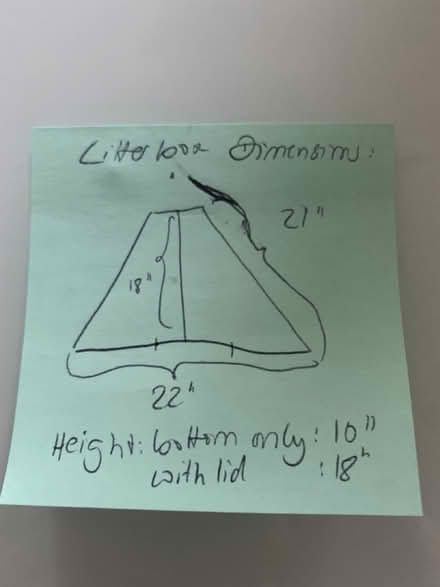 Litter box Dimensions:
21"
18"
22"
Height: bottom only: 10"
with lid : 18"